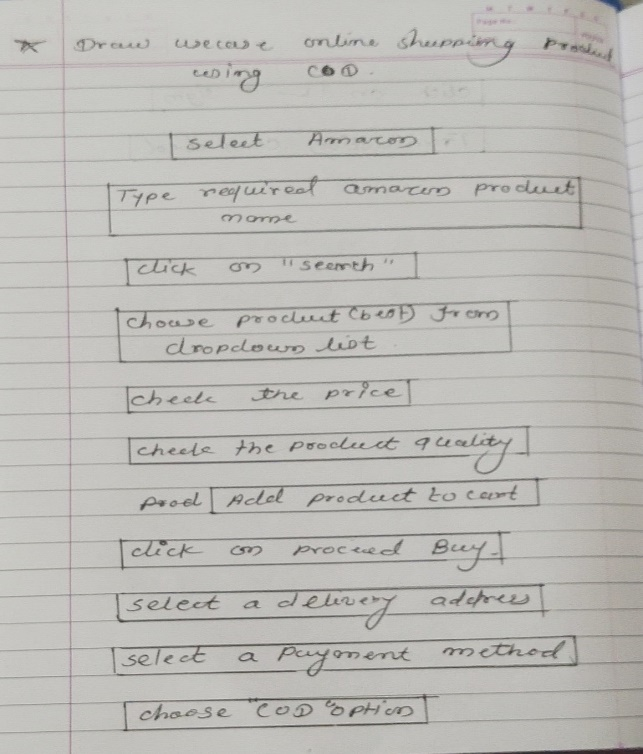 Draw usecase online shopping product
using COD.
select Amazon
Type required amazon product
name
click on "search"
choose product (best) from
dropdown list
check the price
check the product quality
prod Add product to cart
click on proceed Buy.
select a delivery address
select a payment method
choose "COD" option